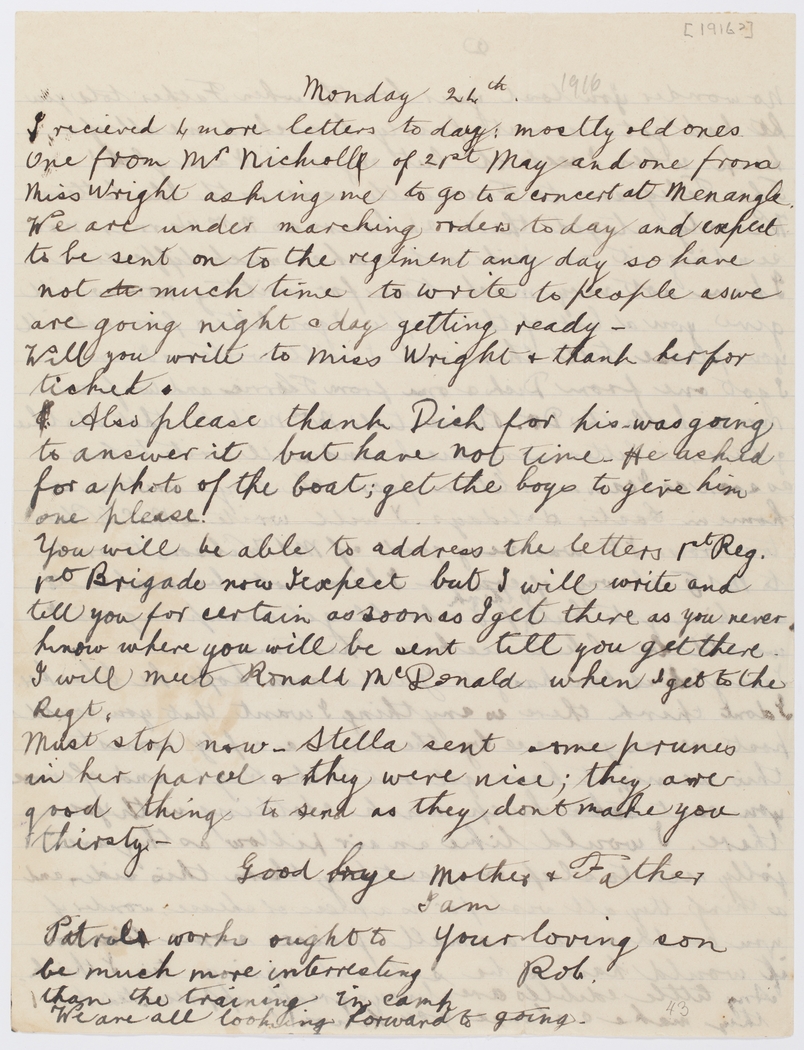 [1916?]
Monday 24th. 1916
I recieved 4 more letters to day; mostly old ones
One from Mr Nicholl of 21st May and one from
Miss Wright asking me to go to a concert at Menangle.
We are under marching orders to day and expect
to be sent on to the regiment any day so have
not much time to write to people as we
are going night & day getting ready —
Will you write to Miss Wright & thank her for
ticket.
Also please thank Dick for his - was going
to answer it but have not time - He asked
for a photo of the boat; get the boys to give him
one please.
You will be able to address the letters 1st Reg.
1st Brigade now I expect but I will write and
tell you for certain as soon as I get there as you never
know where you will be sent till you get there.
I will meet Ronald McDonald when I get to the
Regt.
Must stop now - Stella sent some prunes
in her parcel & they were nice; they are
good things to send as they dont make you
thirsty —
Good bye Mother & Father
I am
Your loving son
Rob.
Patrol work ought to
be much more interresting
than the training in camp
We are all looking forward to going.
43